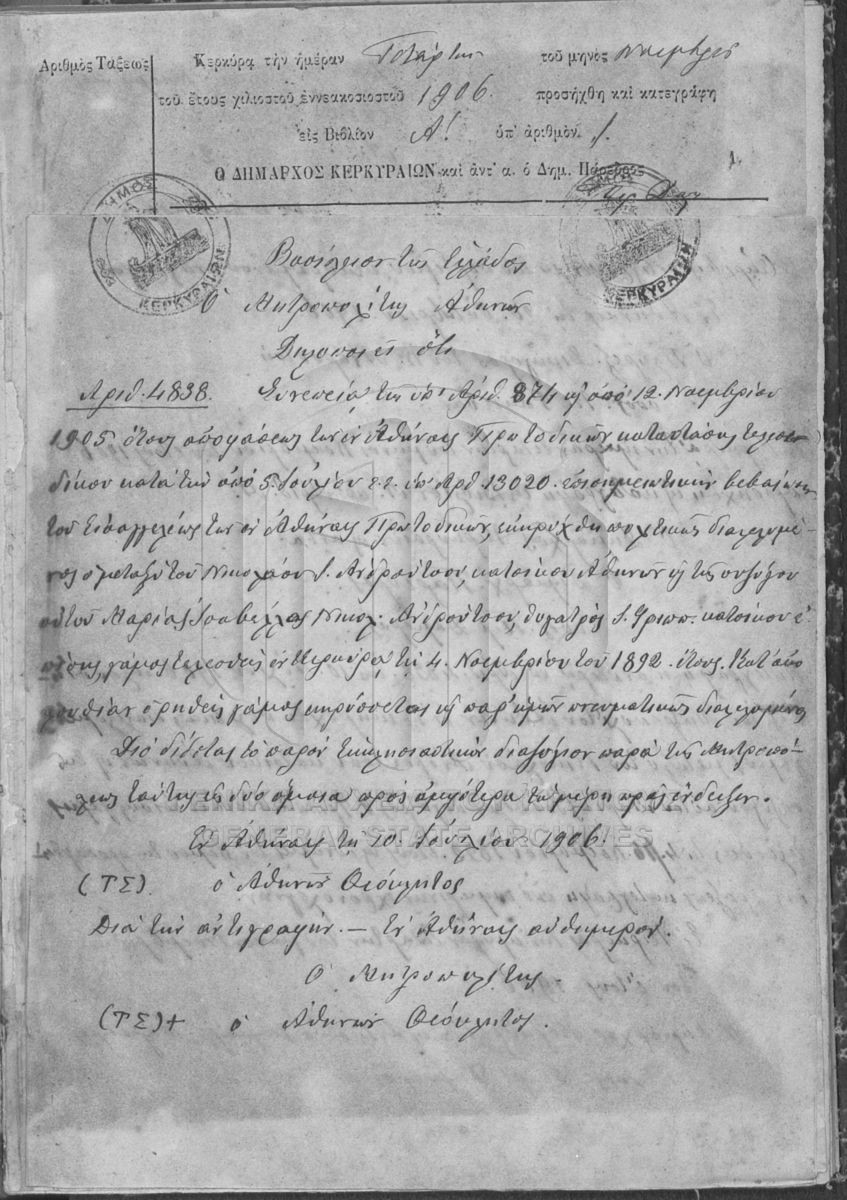 Ἀριθμὸς Τάξεως
Κερκύρα τὴν ἡμέραν Τετάρτην τοῦ μηνὸς Νοεμβρίου
τοῦ ἔτους χιλιοστοῦ ἐννεακοσιοστοῦ 1906. προσήχθη καὶ κατεγράφη
εἰς Βιβλίον Α! ὑπ' ἀριθμὸν 1.
1.
Ο ΔΗΜΑΡΧΟΣ ΚΕΡΚΥΡΑΙΩΝ καὶ ἀντ' α. ὁ Δημ. Πάρεδρος
ΔΗΜΟΣ ΚΕΡΚΥΡΑΙΩΝ
ΚΕΡΚΥΡΑΙΩΝ
Βασίλειον τῆς Ἑλλάδος
Ὁ Μητροπολίτης Ἀθηνῶν
Δηλοποιεῖ ὅτι
Ἀριθ. 4838. Συνεπείᾳ τῆς ὑπ' Ἀριθ. 874 καὶ ἀπὸ 12. Νοεμβρίου
1905 ἔτους ἀποφάσεως τῶν ἐν Ἀθήναις Πρωτοδικῶν, καταστάσης τελεσι-
δίκου κατὰ τὴν ἀπὸ 5. Ἰουλίου ἐ.ἔ. ὑπ' Ἀρθ. 13020 ἐπισημειωτικὴν βεβαίωσιν
τοῦ Εἰσαγγελέως τῶν ἐν Ἀθήναις Πρωτοδικῶν, ἐκηρύχθη πολιτικῶς διαλελυμέ-
νος ὁ μεταξὺ τοῦ Νικολάου Ἀνδρούτσου, κατοίκου Ἀθηνῶν καὶ τῆς συζύγου
αὐτοῦ Μαρίας Ἰσαβέλλας Νικολ. Ἀνδρούτσου, θυγατρὸς κατοίκου ἐ-
πίσης, γάμος τελεσθεὶς ἐν Κερκύρᾳ τῇ 4. Νοεμβρίου τοῦ 1892 ἔτους. Κατ' ἀκο-
λουθίαν ὁ ρηθεὶς γάμος κηρύσσεται καὶ παρ' ἡμῶν πνευματικῶς διαλελυμένος
Διὸ δίδεται τὸ παρὸν ἐκκλησιαστικὸν διαζύγιον παρὰ τῆς Μητροπό-
λεως ταύτης εἰς δύο ὅμοια πρὸς ἀμφότερα τὰ μέρη πρὸς ἔνδειξιν.
GENERAL STATE ARCHIVES
Ἐν Ἀθήναις τῇ 10. Ἰουλίου 1906.
(ΤΣ) ὁ Ἀθηνῶν Θεόκλητος
Διὰ τὴν ἀντιγραφήν. — Ἐν Ἀθήναις αὐθημερόν.
Ὁ Μητροπολίτης
(ΤΣ)+ ὁ Ἀθηνῶν Θεόκλητος.